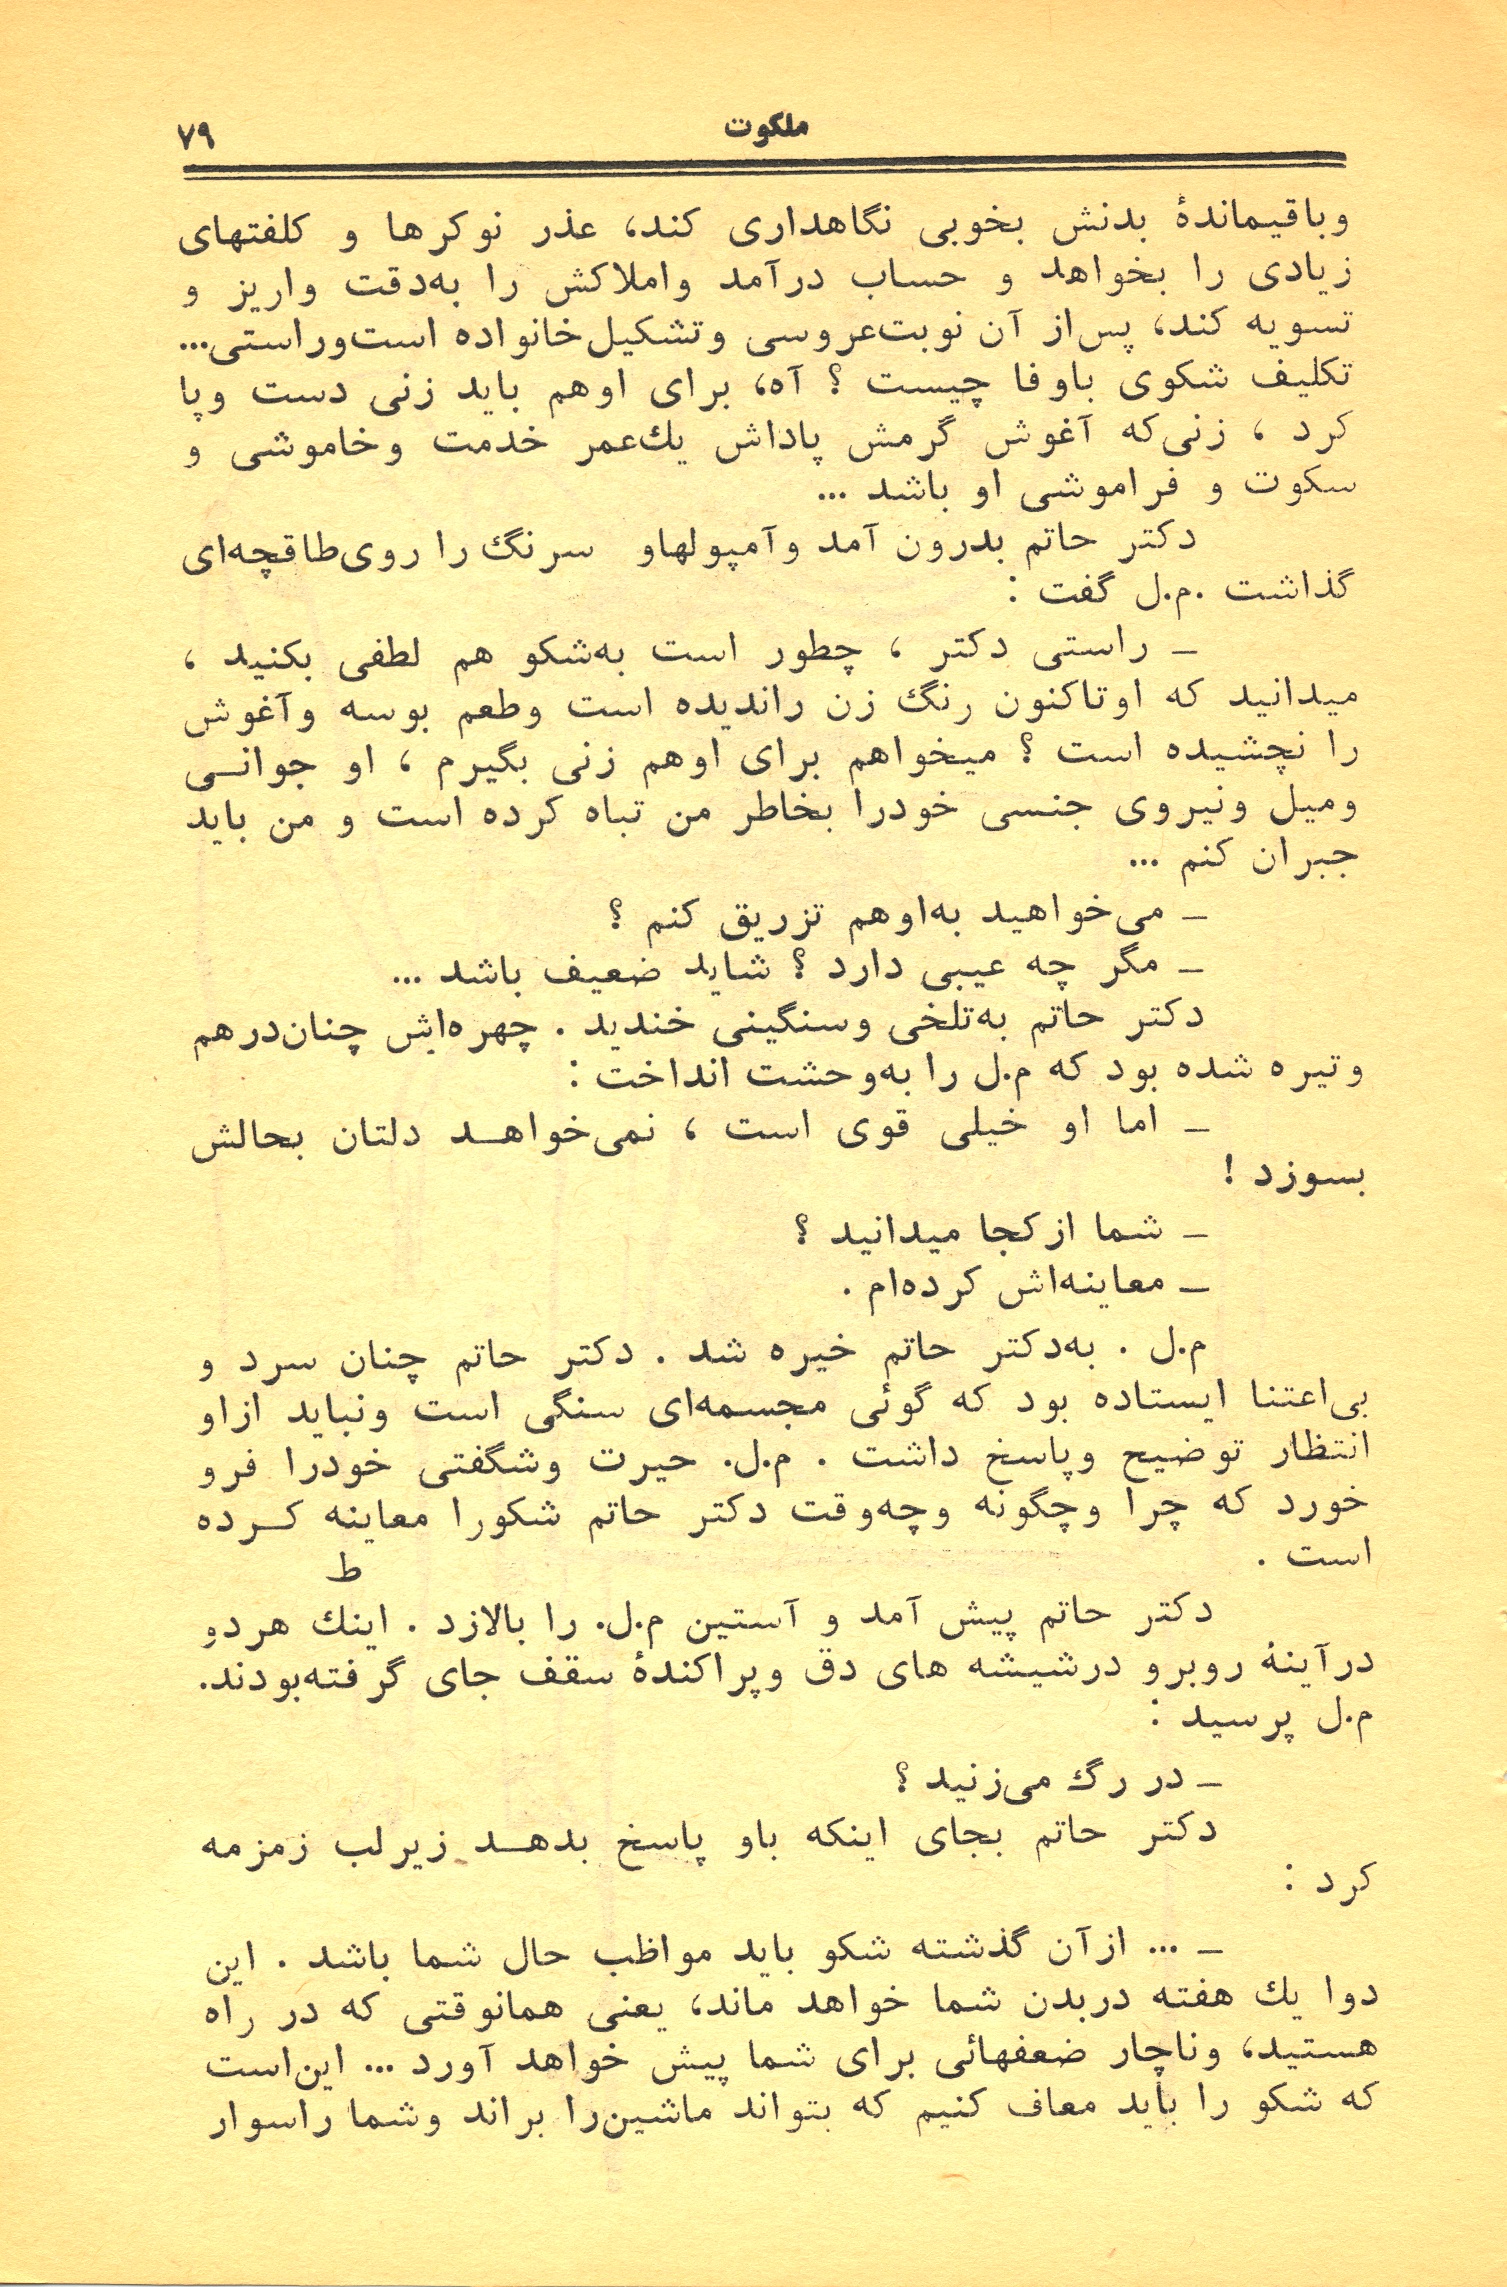 ملکوت
۷۹
وباقیماندهٔ بدنش بخوبی نگاهداری کند، عذر نوکرها و کلفتهای
زیادی را بخواهد و حساب درآمد واملاکش را به‌دقت واریز و
تسویه کند، پس‌از آن نوبت‌عروسی وتشکیل‌خانواده است‌وراستی...
تکلیف شکوی باوفا چیست ؟ آه، برای اوهم باید زنی دست وپا
کرد ، زنی‌که آغوش گرمش پاداش یك‌عمر خدمت وخاموشی و
سکوت و فراموشی او باشد ...
دکتر حاتم بدرون آمد وآمپولهاو سرنگ را روی‌طاقچه‌ای
گذاشت .م.ل گفت :
ـ راستی دکتر ، چطور است به‌شکو هم لطفی بکنید ،
میدانید که اوتاکنون رنگ زن راندیده است وطعم بوسه وآغوش
را نچشیده است ؟ میخواهم برای اوهم زنی بگیرم ، او جوانـی
ومیل ونیروی جنسی خودرا بخاطر من تباه کرده است و من باید
جبران کنم ...
ـ می‌خواهید به‌اوهم تزریق کنم ؟
ـ مگر چه عیبی دارد ؟ شاید ضعیف باشد ...
دکتر حاتم به‌تلخی وسنگینی خندید . چهره‌اش چنان‌درهم
وتیره شده بود که م.ل را به‌وحشت انداخت :
ـ اما او خیلی قوی است ، نمی‌خواهـد دلتان بحالش
بسوزد !
ـ شما ازکجا میدانید ؟
ـ معاینه‌اش کرده‌ام .
م.ل . به‌دکتر حاتم خیره شد . دکتر حاتم چنان سرد و
بی‌اعتنا ایستاده بود که گوئی مجسمه‌ای سنگی است ونباید ازاو
انتظار توضیح وپاسخ داشت . م.ل. حیرت وشگفتی خودرا فرو
خورد که چرا وچگونه وچه‌وقت دکتر حاتم شکورا معاینه کـرده
است .
ط
دکتر حاتم پیش آمد و آستین م.ل. را بالازد . اینك هردو
درآینهٔ روبرو درشیشه های دق وپراکندهٔ سقف جای گرفته‌بودند.
م.ل پرسید :
ـ در رگ می‌زنید ؟
دکتر حاتم بجای اینکه باو پاسخ بدهـد زیرلب زمزمه
کرد :
ـ ... ازآن گذشته شکو باید مواظب حال شما باشد . این
دوا یك هفته دربدن شما خواهد ماند، یعنی همانوقتی که در راه
هستید، وناچار ضعفهائی برای شما پیش خواهد آورد ... این‌است
که شکو را باید معاف کنیم که بتواند ماشین‌را براند وشما راسوار